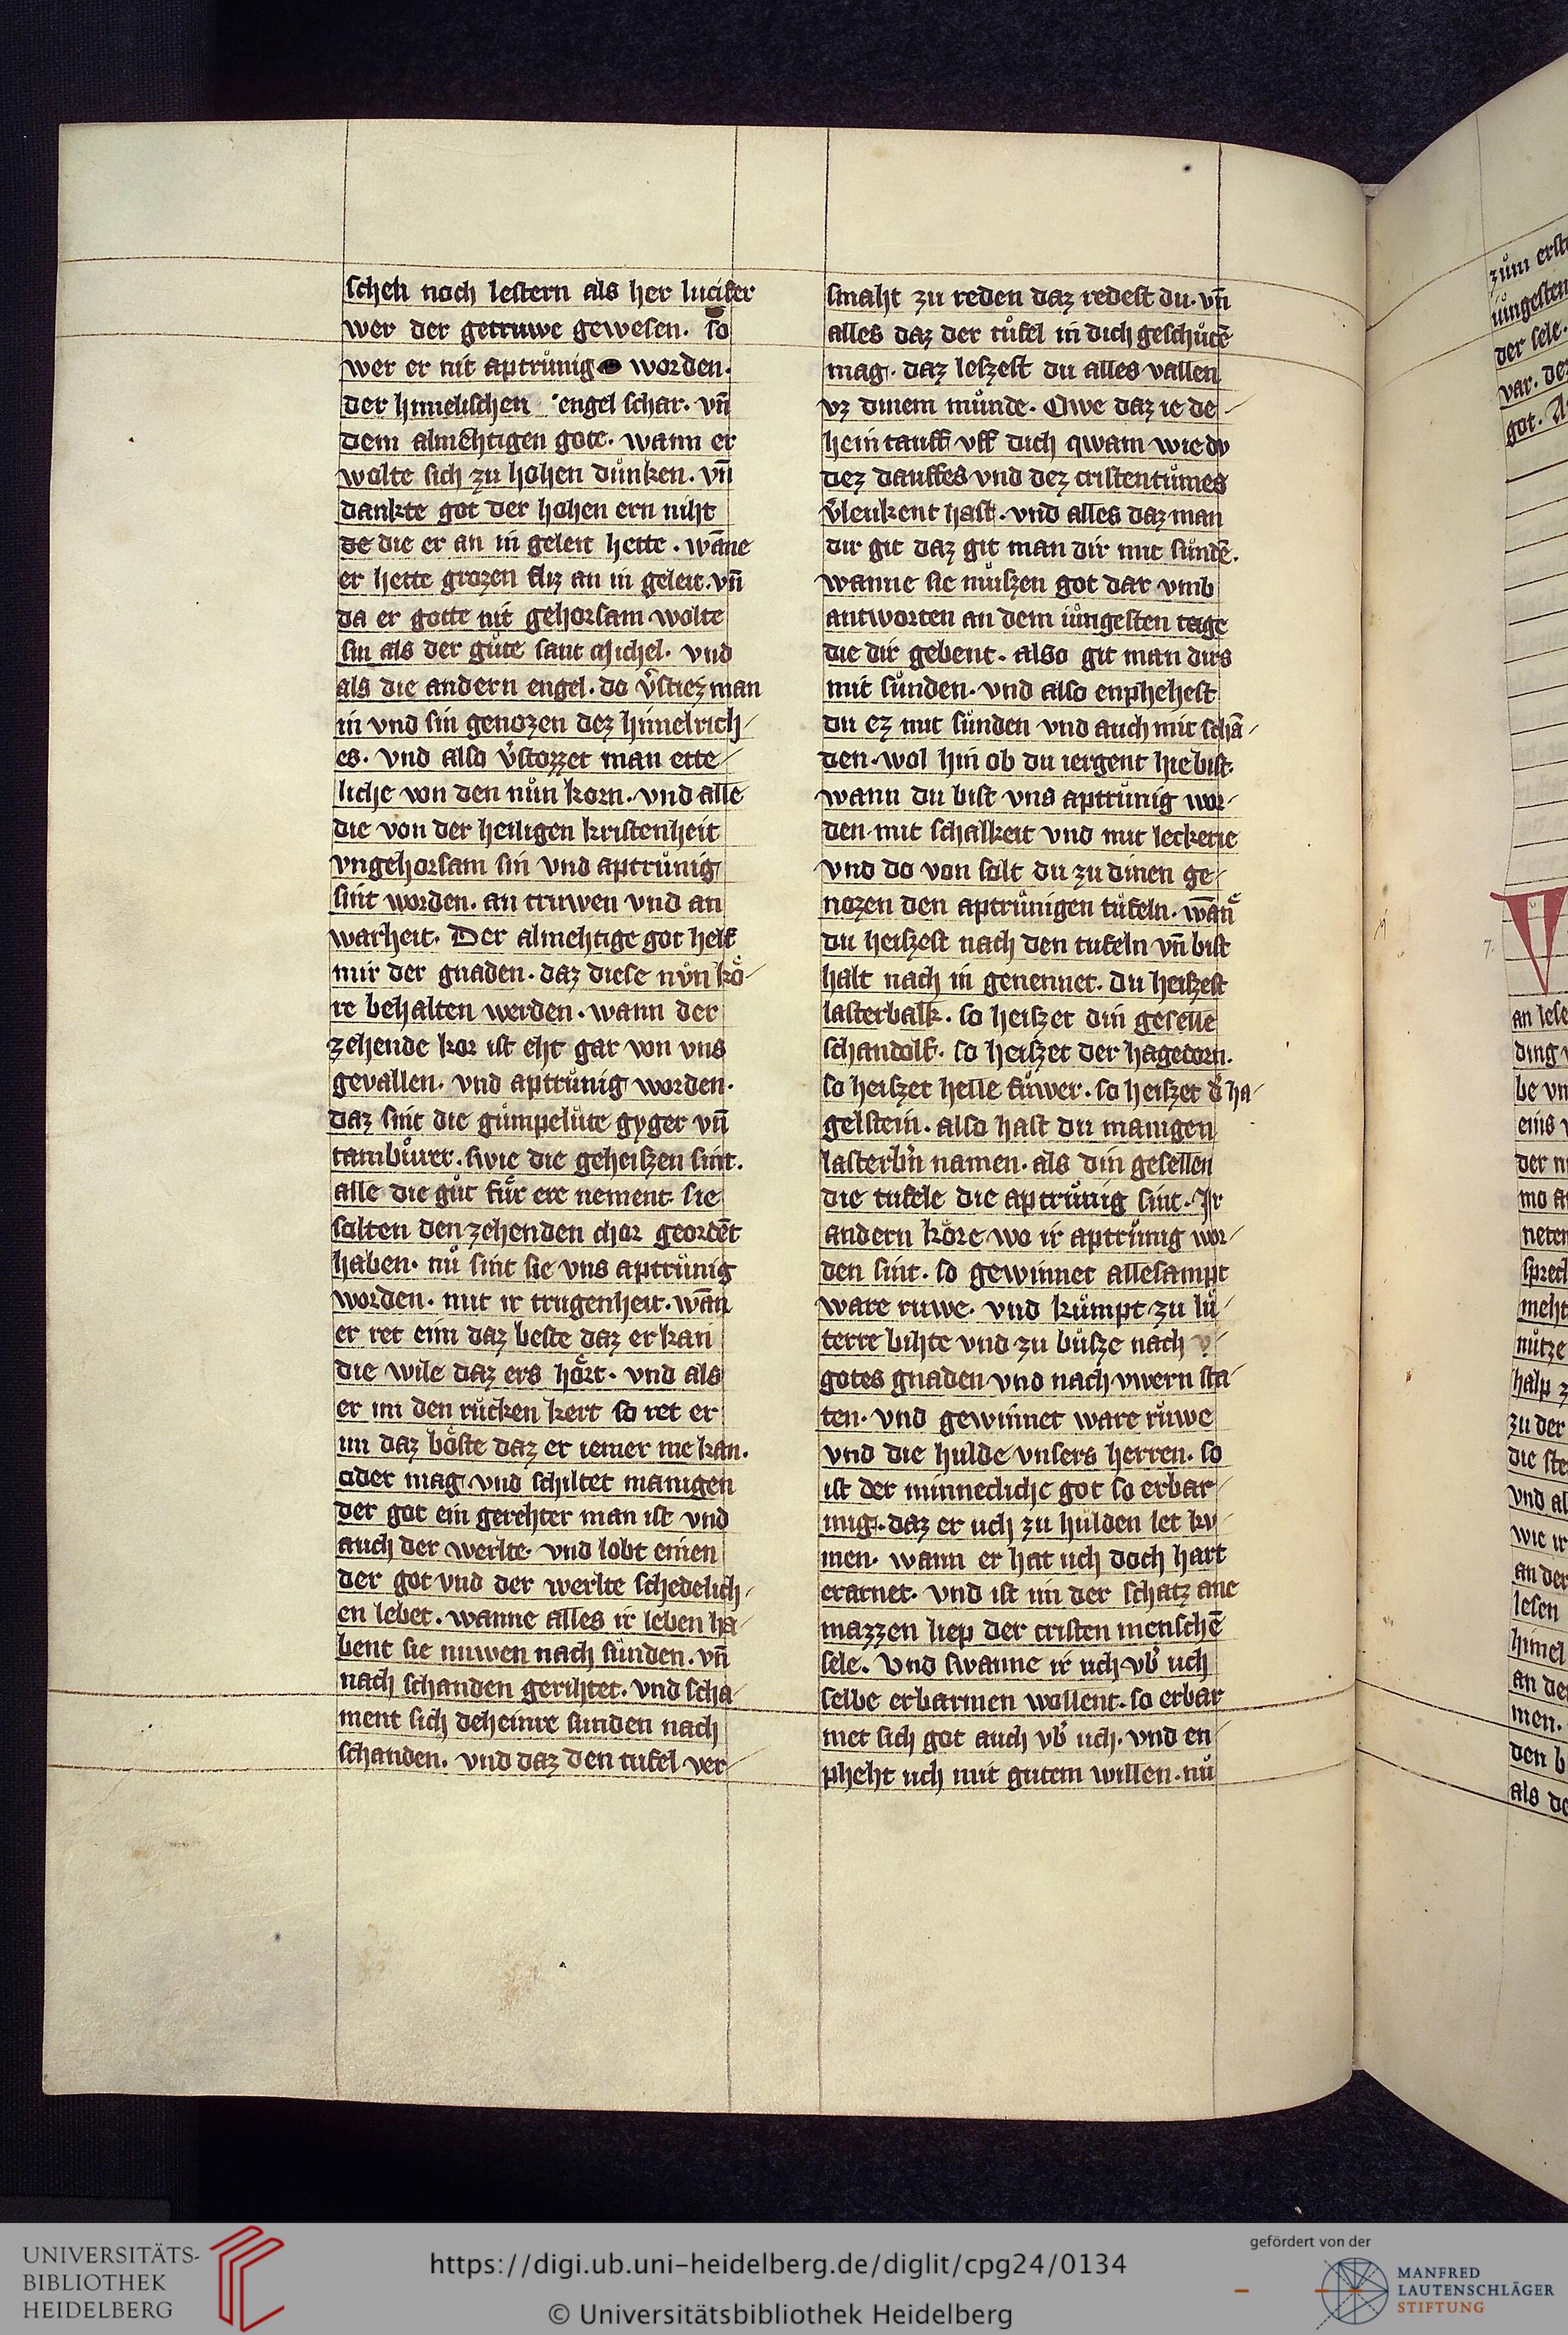 scheh noch lestern als her lucifer
wer der getruwe gewesen. so
wer er nit aptrůnig worden.
der himelischen engel schar. vn̄
dem almehtigen gote. wann er
wolte sich zu hohen důnken. vn̄
dankte got der hohen ern niht
de die er an in geleit hette. wāne
er hette grozen fliz an in geleit. vn̄
da er gotte nit gehorsam wolte
sin als der gůte sant Michel. vnd
als die andern engel. do v̾stiez man
in vnd sin genozen dez himelrich-
es. vnd also v̾stozzet man ette-
liche von den nůn korn. vnd alle
die von der heiligen kristenheit
vngehorsam sin vnd aptrůnig
sint worden. an truwen vnd an
warheit. Der almehtige got helf
mir der gnaden. daz diese nvͦn kö-
re behalten werden. wann der
zehende kor ist eht gar von vns
gevallen. vnd aptrůnig worden.
daz sint die gůmpelůte gyger vn̄
tambůrer. swie die geheiszen sint.
alle die gůt fůr ere nement. sie
solten den zehenden chor geordēt
haben. nů sint sie vns aptrůnig
worden. mit ir trugenheit. wān
er ret eim daz beste daz er kan
die wile daz ers hört. vnd als
er im den růcken kert so ret er
im daz böste daz er iemer me kan.
oder mag vnd schiltet manigen
der got ein gerehter man ist vnd
auch der werlte. vnd lobt einen
der got vnd der werlte schedelich-
en lebet. wanne alles ir leben ha-
bent sie nuwen nach sůnden. vn̄
nach schanden gerihtet. vnd scha-
ment sich deheinre sunden nach
schanden. vnd daz den tufel ver-
smaht zu reden daz redest du. vn̄
alles daz der tůfel in dich geschůtē
mag. daz leszest du alles vallen
vz dinem můnde. Owe daz ie de-
hein tauff vff dich qwam wie dv
dez dauffes vnd dez cristentůmes
v̾leukent hast. vnd alles daz man
dir git daz git man dir mit sůndē.
wanne sie můszen got dar vmb
antworten an dem iůngesten tage
die dir gebent. also git man dirs
mit sůnden. vnd also enphehest
du ez mit sůnden vnd auch mit schā-
den. wol hin ob du iergent hie bist.
wann du bist vns aptrůnig wor-
den mit schalkeit vnd mit leckerie
vnd do von solt du zu dinen ge-
nozen den aptrůnigen tůfeln. wānͤ
du heiszest nach den tufeln vn̄ bist
halt nach in genennet. du heiszest
lasterbalk. so heiszet din geselle
schandolf. so heiszet der hagedorn.
so heiszet helle fůwer. so heiszet d̾ ha-
gelstein. also hast du manigen
lasterb̾n namen. als din gesellen
die tufele die aptrůnig sint. Ir
andern köre wo ir aptrůnig wor-
den sint. so gewinnet allesampt
ware ruwe. vnd kůmpt zu lů-
terre bihte vnd zu bůsze nach
gotes gnaden vnd nach vwern sta-
ten. vnd gewinnet ware růwe
vnd die hulde vnsers herren. so
ist der minnecliche got so erbar-
mig. daz er uch zu hulden let kv-
men. wann er hat uch doch hart
erarnet. vnd ist im der schatz ane
mazzen liep der cristen menschē
sele. Vnd swanne ir uch vb̾ uch
selbe erbarmen wollent. so erbar
met sich got auch vb̾ uch. vnd en-
pheht uch mit gutem willen. nů
zům erst
iůngesten
der sele.
var. de
got.
an lese
ding
be vn
eins
der
neten
sprech
meht
nůtze
halp z
zu der
die ste
vnd al
wie ir
an der
lesen
himel
an de
men.
den b
als de
UNIVERSITÄTS-
BIBLIOTHEK
HEIDELBERG
https://digi.ub.uni-heidelberg.de/diglit/cpg24/0134
© Universitätsbibliothek Heidelberg
gefördert von der
MANFRED
LAUTENSCHLÄGER
STIFTUNG